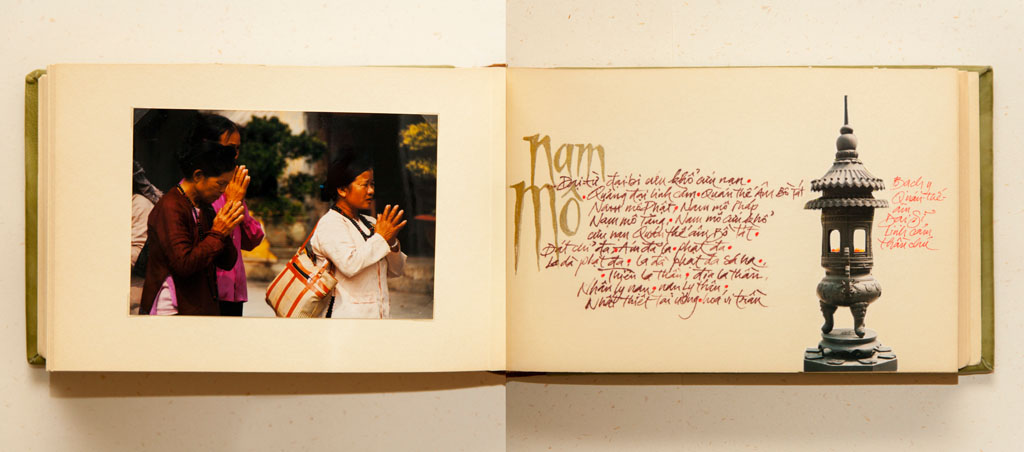 nam
mô
Đại từ đại bi cứu khổ cứu nạn •
Quảng đại linh cảm • Quán thế Âm Bồ tát
Nam mô Phật, Nam mô Pháp
Nam mô Tăng • Nam mô cứu khổ
cứu nạn Quán thế âm Bồ tát •
Đát chỉ đa • Án đà la phạt đa •
La đà phạt đa • la đà phạt đa sá ha •
Thiên la thần • địa la thần,
Nhân ly nạn • nạn ly thân •
Nhất thiết tai ương • hóa vi trần
Bạch y
Quán thế
âm
Đại Sĩ
linh cảm
thần chú